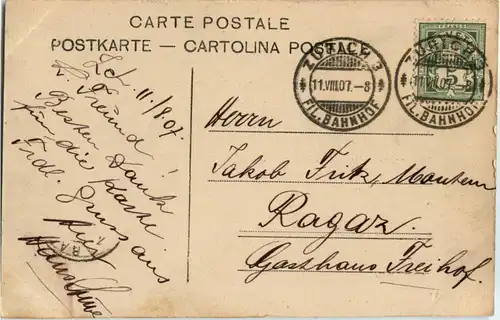 CARTE POSTALE
POSTKARTE — CARTOLINA POSTALE
ZÜRICH 3
11.VIII.07.–8
FIL. BAHNHOF
ZÜRICH 3
FIL. BAHNHOF
5
Zch. 11/8.07
L. Freund!
Besten Dank
für die Karte
Frdl. Gruss aus
Herrn
Jakob Fritz, Monteur
Ragaz.
Gasthaus Freihof.